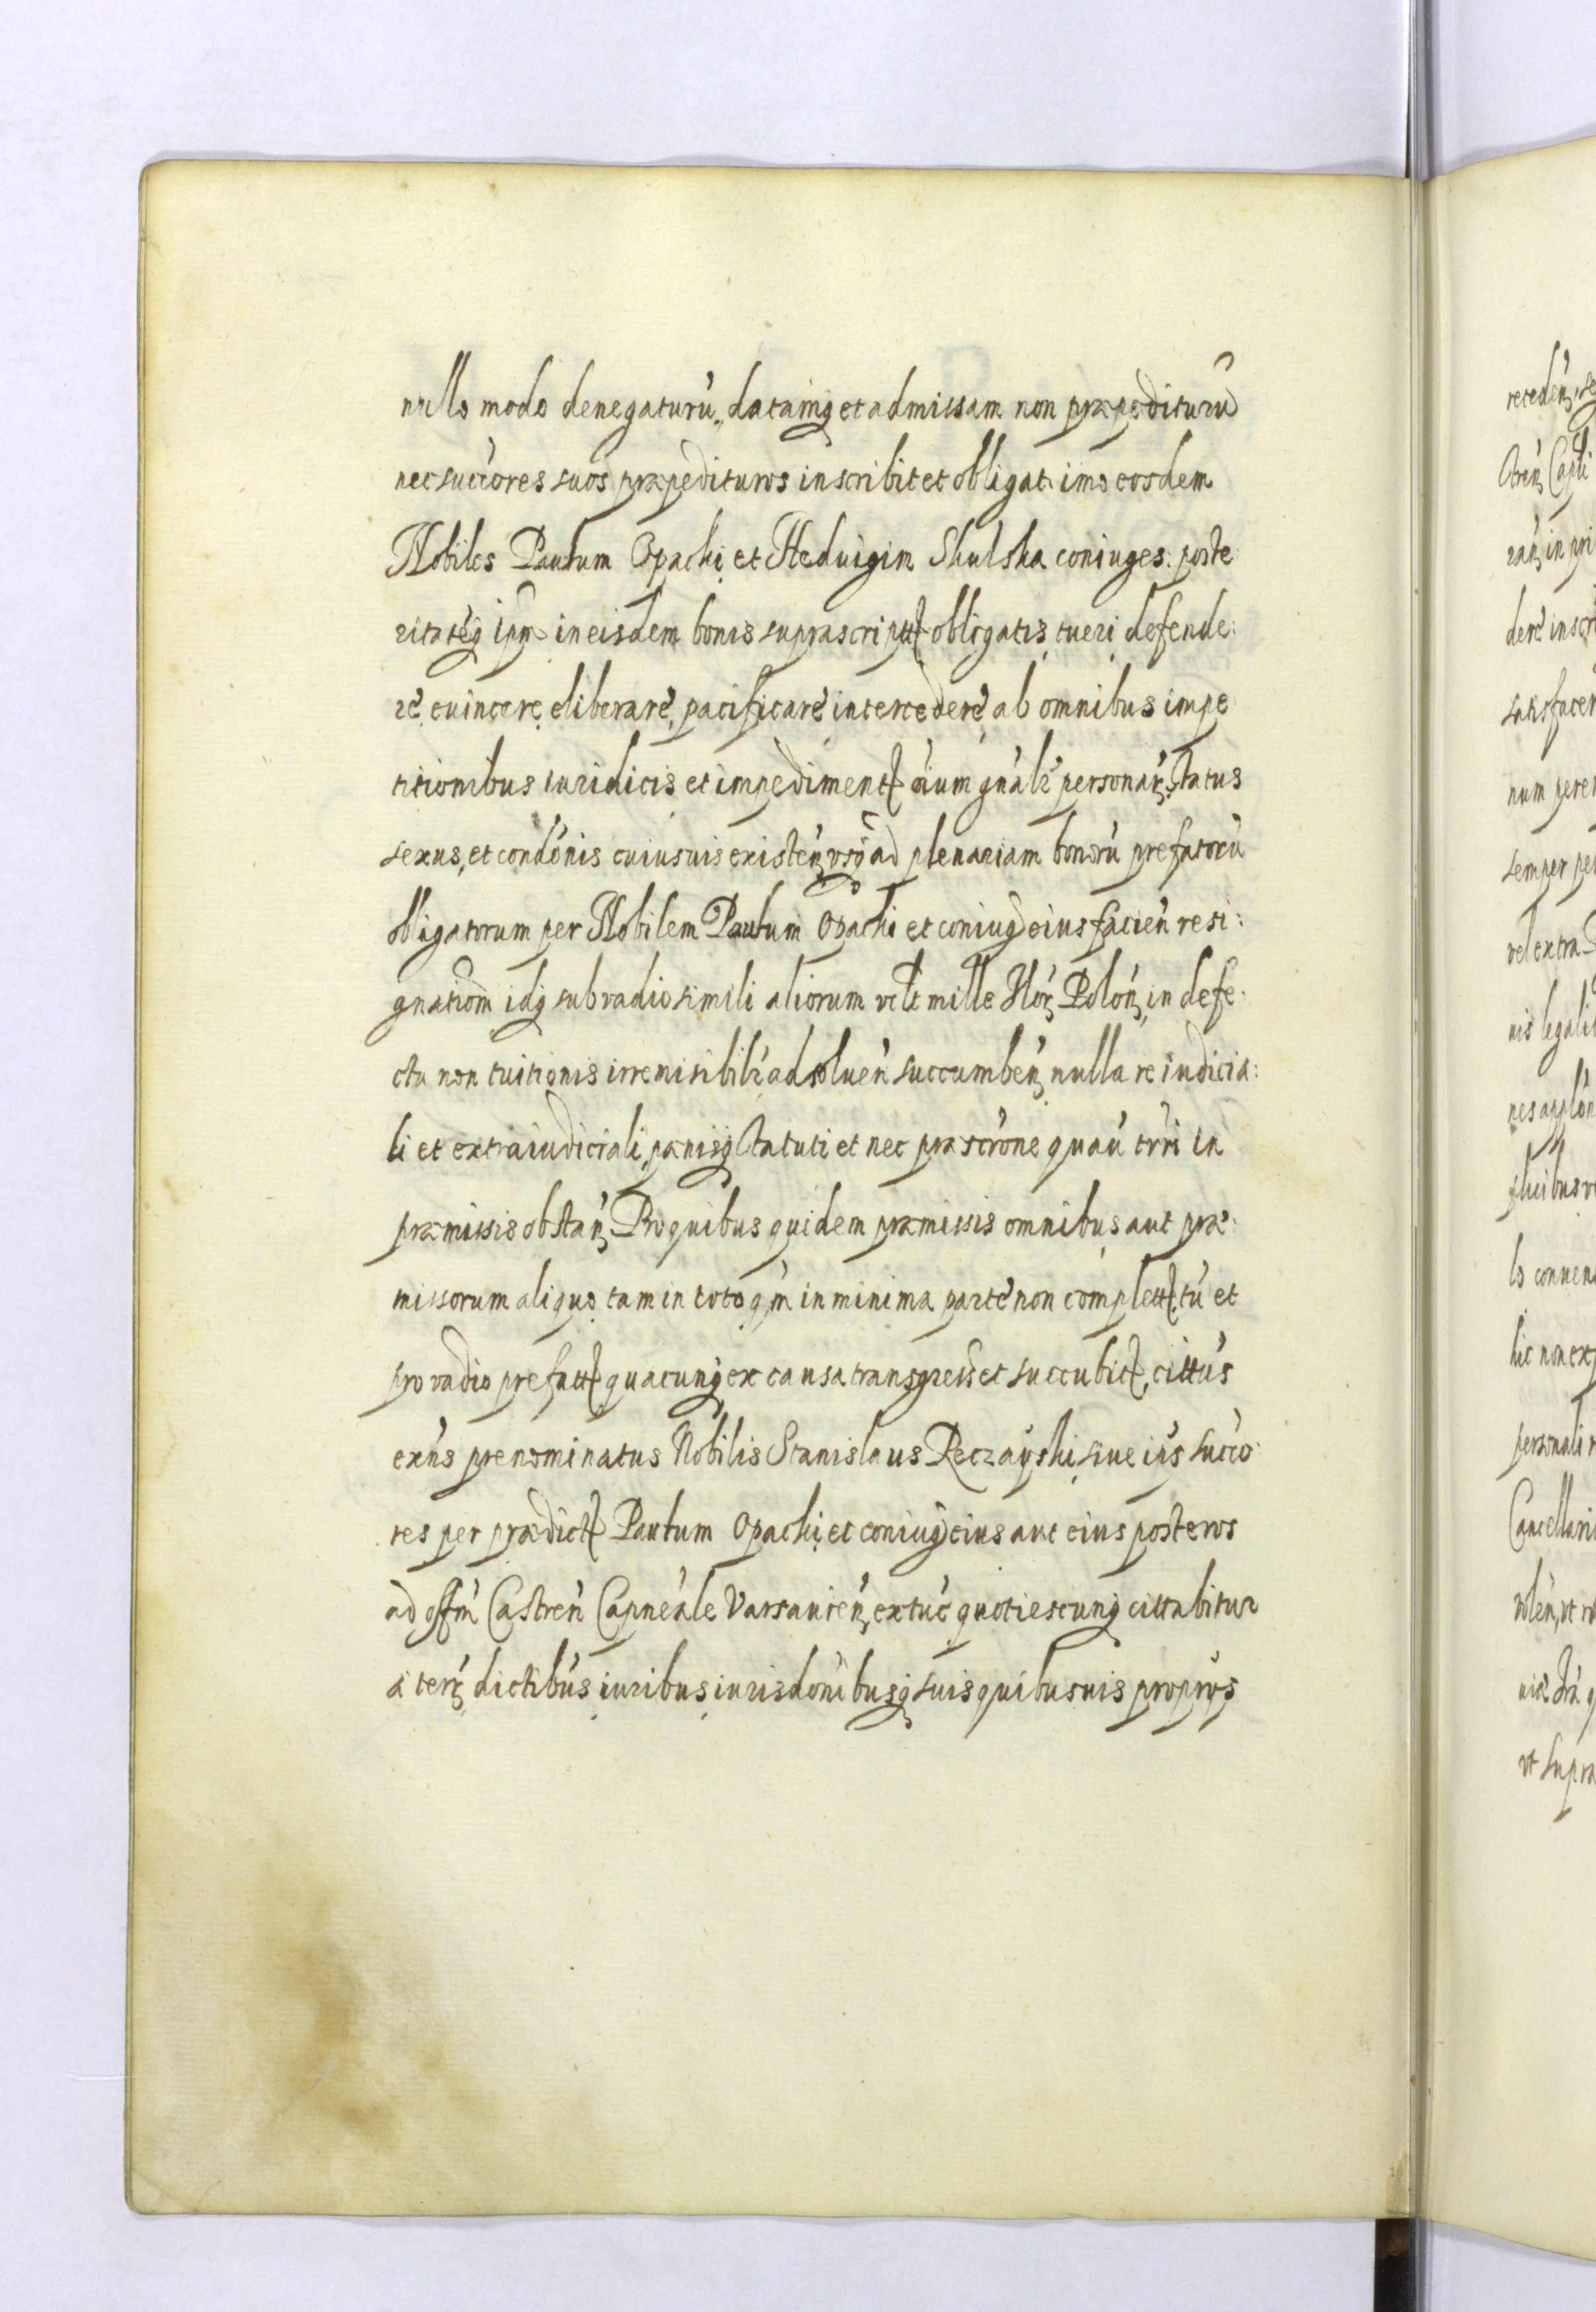 nullo modo denegaturū, datamq̃ et admissam non præpediturū
nec succ̄ores suos præpedituros inscribit et obligat imo eosdem
Nobiles Paulum Opacki et Heduigim Skulska coniuges: poste
ritatēq̃ ip̃m in eisdem bonis suprascriptt obligatis tueri defende:
re, euincere, eliberare, pacificare intercedere ab omnibus impe
titionibus iuridicis et impedimentt oīum gn̄alr̄ personar̄, status
sexus, et condōnis cuiusuis existeñ, vsq̃ ad plenariam bonorū prefatorū
obligatorum per Nobilem Paulum Opacki et coniugē eius facień resi:
gnatiom̄ idq̃ sub vadio simili aliorum vlt mille Flor̄ Poloń, in defe:
ctu non tuitionis irremisibilr̄ ad soluen̄ succumbeń, nulla re iudicia:
li et extraiudiciali, pænisq̃ statuti et nec præscr̄one quaū trri in
præmissis obstań. Pro quibus quidem præmissis omnibus aut præ:
missorum aliquo, tam in toto q̃m in minima parte non complett, tū et
pro vadio prefatt quacunq̃ ex causa transgreśś et succubitt, cittūs
exn̄s prenominatus Nobilis Stanislaus Reczayski, siue ip̄s succo
res per prædictt Paulum Opacki, et coniugē eius aut eius posteros
ad offm̄ Castreń Capneāle Varsauień, ex tūc quotiescunq̃ cittabitur
a terr̄ dictibūs iuribus iurisdōnibusq̃ suis quibusuis proprys
receden̄,
Capli
in pri
dere inscr
satisfacer
num perer
semper per
vel extra
nis legali
nes
ls conuen
hic non ex
personali
Cancellari
vt supra